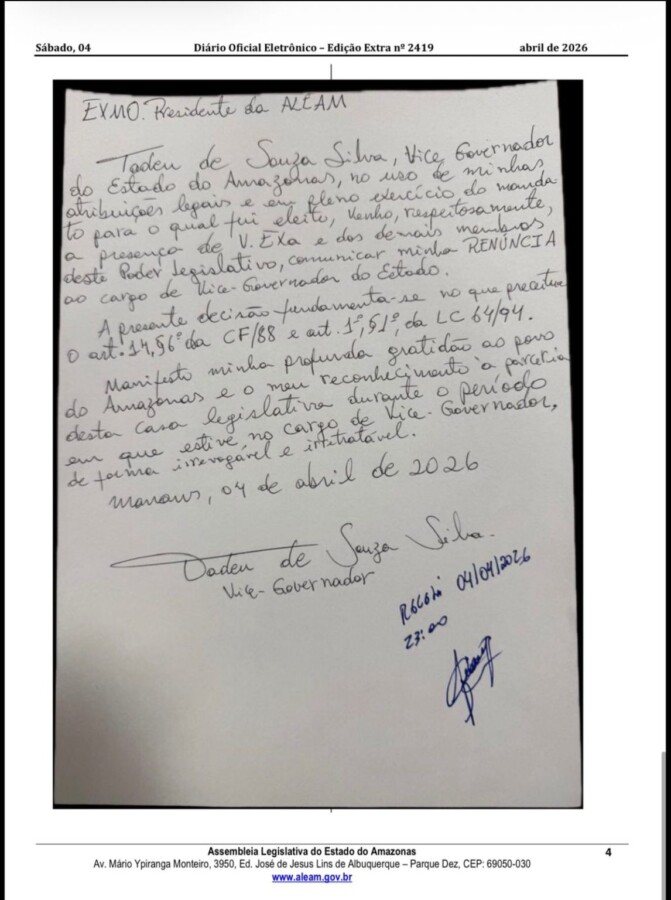 Sábado, 04 Diário Oficial Eletrônico – Edição Extra nº 2419 abril de 2026
EXMO. Presidente da ALEAM
Tadeu de Souza Silva, Vice Governador
do Estado do Amazonas, no uso de minhas
atribuições legais e em pleno exercício do manda
to para o qual fui eleito, venho, respeitosamente,
a presença de V. EXa e dos demais membros
deste Poder Legislativo, comunicar minha RENÚNCIA
ao cargo de Vice-Governador do Estado.
A presente decisão fundamenta-se no que preceitua
o art. 14, §6º da CF/88 e art. 1º, §1º, da LC 64/94.
Manifesto minha profunda gratidão ao povo
do Amazonas e o meu reconhecimento à parceria
desta casa legislativa durante o período
em que estive, no cargo de Vice-Governador,
de forma irrevogável e irretratável.
Manaus, 04 de abril de 2026
Tadeu de Souza Silva.
Vice-Governador
Recebi 04/04/2026
23:00
Assembleia Legislativa do Estado do Amazonas 4
Av. Mário Ypiranga Monteiro, 3950, Ed. José de Jesus Lins de Albuquerque – Parque Dez, CEP: 69050-030
www.aleam.gov.br